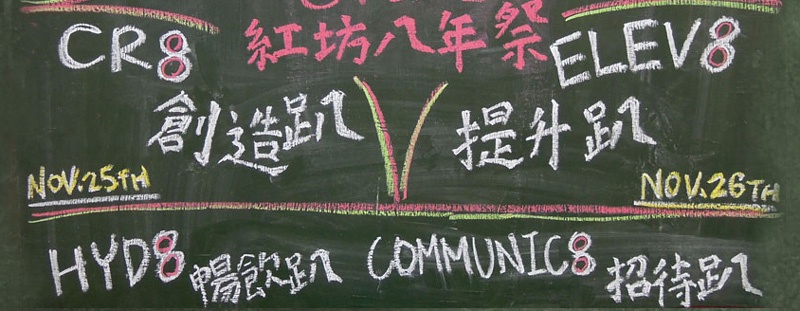 紅坊八年祭
CR8 ELEV8
創造趴 提升趴
NOV.25TH NOV.26TH
HYD8 暢飲趴 COMMUNIC8 招待趴